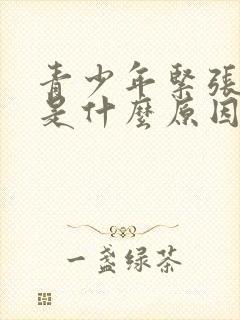 青少年緊張
是什麼原因
一盏绿茶